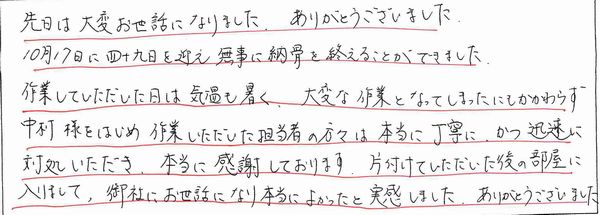 先日は大変お世話になりました。ありがとうございました。
10月17日に四十九日を迎え無事に納骨を終えることができました。
作業していただいた日は気温も暑く、大変な作業となってしまったにもかかわらず
中村様をはじめ作業いただいた担当者の方々は本当に丁寧に、かつ迅速に
対処いただき、本当に感謝しております。片付けていただいた後の部屋に
入りまして、御社にお世話になり本当によかったと実感しました。ありがとうございました